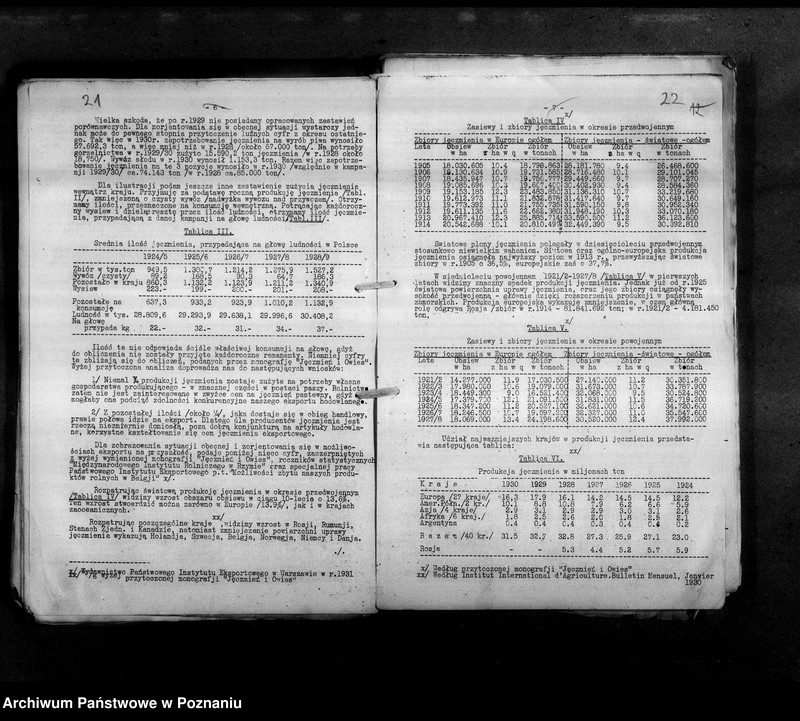 21
- 6 -
Wielka szkoda, że po r.1929 nie posiadamy opracowanych zestawień
porównawczych. Dla zorjentowania się w obecnej sytuacji wystarczy jed-
nak może do pewnego stopnia przytoczenie luźnych cyfr z okresu ostatnie-
go. Tak więc w 1930r. zapotrzebowanie jęczmienia na wyrób piwa wynosiło
57.692,3 ton, a więc mniej niż w r.1928 /około 67.000 ton/. Na potrzeby
gorzelnictwa w r.1929/30 zużyto 18.590,0 ton jęczmienia /w r.1928 około
18,750/. Wywóz słodu w r.1930 wynosił 1.153,3 ton. Razem więc zapotrze-
bowanie jęczmienia na te 3 pozycje wynosiło w r.1930 /względnie w kampa-
nji 1929/30/ ca.74.143 ton /w r.1928 ca.85.000 ton/.
Dla ilustracji podam jeszcze inne zestawienie zużycia jęczmienia
wewnątrz kraju. Przyjmuję za podstawę roczną produkcję jęczmienia /Tabl.
II/, zmniejszoną o czysty wywóz /nadwyżka wywozu nad przywozem/. Otrzy-
mamy ilości, przeznaczone na konsumcję wewnętrzną. Potrącając każdorocz-
ny wysiew i dzieląc resztę przez ilość ludności, otrzymamy ilość jęczmie-
nia, przypadającą z danej kampanji na głowę ludności /Tabl.III/.
Tablica III.
Średnia ilość jęczmienia, przypadająca na głowę ludności w Polsce
1924/5 1925/6 1926/7 1927/8 1928/9
Zbiór w tys.ton 949,5 1.300,7 1.214,2 1.275,9 1.527,2
Wywóz /czysty/ 89,2 168,5 90,3 64,7 186,3
Pozostało w kraju 860,3 1.132,2 1.123,9 1.211,2 1.340,9
Wysiew 223.- 199.- 200.- 201.- 208.-
Pozostało na
konsumcję 637,3 933,2 923,9 1.010,2 1.132,9
Ludność w tys. 28.809,6 29.293,9 29.638,1 29.996,6 30.408,2
Na głowę
przypada kg 22.- 32.- 31.- 34.- 37.-
Ilość ta nie odpowiada ściśle właściwej konsumcji na głowę, gdyż
do obliczenia nie zostały przyjęte każdoroczne remanenty. Niemniej cyfry
te zbliżają się do obliczeń, podanych przez monografję "Jęczmień i Owies".
Wyżej przytoczona analiza doprowadza nas do następujących wniosków:
1/ Niemal ¾ produkcji jęczmienia zostaje zużyte na potrzeby własne
gospodarstwa produkującego - w znacznej części w postaci paszy. Rolnictwo
zatem nie jest zainteresowane w zwyżce cen na jęczmień pastewny, gdyż
mogłaby ona podciąć zdolności konkurencyjne naszego eksportu hodowlanego.
2/ Z pozostałej ilości /około ¼/, jaka dostaje się w obieg handlowy,
prawie połowa idzie na eksport. Dlatego dla producentów jęczmienia jest
rzeczą niezmiernie doniosłą, poza dobrą konjunkturą na artykuły hodowla-
ne, korzystne kształtowanie się cen jęczmienia eksportowego.
Dla zobrazowania sytuacji obecnej i zorjentowania się w możliwo-
ściach eksportu na przyszłość, podaję poniżej nieco cyfr, zaczerpniętych
z wyżej wymienionej monografji "Jęczmień i Owies", roczników statystycznych
"Międzynarodowego Instytutu Rolniczego w Rzymie" oraz specjalnej pracy
Państwowego Instytutu Eksportowego p.t. "Możliwości zbytu naszych produ-
któw rolnych w Belgji" x/.
Rozpatrując światową produkcję jęczmienia w okresie przedwojennym
/Tablica IV/ widzimy wzrost obszaru obsiewu w ciągu 10-lecia o 13,6%.
Ten wzrost stwierdzić można zarówno w Europie /13.9%/, jak i w krajach
zaoceanicznych.
xx/
Rozpatrując poszczególne kraje widzimy wzrost w Rosji, Rumunji,
Stanach Zjedn. i Kanadzie, natomiast zmniejszenie powierzchni uprawy
jęczmienia wykazują Holandja, Szwecja, Belgja, Norwegja, Niemcy i Danja.
./.
x/ Wydawnictwo Państwowego Instytutu Eksportowego w Warszawie w r.1931
xx/ Wg wyżej przytoczonej monografji "Jęczmień i Owies"
22
- 7 -
x/
Tablica IV
Zasiewy i zbiory jęczmienia w okresie przedwojennym
Zbiory jęczmienia w Europie ogółem Zbiory jęczmienia - światowe - ogółem
Lata Obsiew Zbiór Zbiór Obsiew Zbiór Zbiór
w ha z ha w q w tonach w ha z ha w q w tonach
1905 18.030.605 10.4 18.798.863 28.181.780 9.4 26.468.600
1906 18.130.634 10.9 19.731.585 28.716.480 10.1 29.101.045
1907 18.435.947 10.7 19.750.777 29.449.660 9.7 28.707.270
1908 19.085.696 10.3 19.667.400 30.402.930 9.4 28.584.360
1909 19.153.185 12.3 23.483.850 31.196.310 10.7 33.219.680
1910 19.612.973 11.1 21.832.678 31.417.640 9.7 30.649.160
1911 19.773.392 11.0 21.755.735 31.590.150 9.8 30.952.340
1912 19.611.135 11.6 22.662.380 31.948.150 10.3 33.070.180
1913 20.967.410 12.3 25.885.714 33.590.500 11.2 36.123.600
1914 20.542.688 10.1 20.810.497 32.449.390 9.5 30.392.810
Światowe plony jęczmienia polegały w dziesięcioleciu przedwojennym
stosunkowo niewielkim wahaniom. Światowa oraz ogólno-europejska produkcja
jęczmienia osiągnęła najwyższy poziom w 1913 r., przewyższając światowe
zbiory w r.1905 o 36,5%, europejskie zaś o 37,7%.
W siedmioleciu powojennem 1921/2-1927/8 /Tablica V/ w pierwszych
latach widzimy znaczny spadek produkcji jęczmienia. Jednak już od r.1925
światowa powierzchnia uprawy jęczmienia, oraz jego zbiory osiągnęły wy-
sokość przedwojenną - głównie dzięki rozszerzeniu produkcji w państwach
zamorskich. Produkcja europejska wykazuje zmniejszenie, w czem główną
rolę odgrywa Rosja /zbiór w r.1914 - 81.841.692 ton; w r.1921/2 - 4.181.450
ton.
x/
Tablica V.
Zasiewy i zbiory jęczmienia w okresie powojennym
Zbiory jęczmienia w Europie ogółem Zbiory jęczmienia -światowe - ogółem
Lata Obsiew Zbiór Zbiór Obsiew Zbiór Zbiór
w ha z ha w q w tonach w ha z ha w q w tonach
1921/2 14.277.000 11.9 17.030.500 27.140.000 11.2 30.351.800
1922/3 17.980.000 10.6 19.079.000 31.673.000 10.7 33.787.900
1923/4 18.449.300 9.0 16.521.400 32.068.000 9.5 30.524.800
1924/5 17.397.700 12.1 21.091.500 31.831.000 11.5 36.719.200
1925/6 18.347.200 11.2 20.527.100 32.621.000 10.6 34.720.600
1926/7 18.246.500 10.7 19.597.200 32.327.000 11.0 35.547.600
1927/8 18.069.000 13.4 24.198.600 30.520.000 12.4 37.992.000
Udział najważniejszych krajów w produkcji jęczmienia przedsta-
wia następująca tablica:
xx/
Tablica VI.
Produkcja jęczmienia w miljonach ton
K r a j e 1930 1929 1928 1927 1926 1925 1924
Europa /27 kraje/ 16.3 17.9 16.1 14.2 14.5 14.5 12.2
Amer.Półn./2 kr./ 10.1 8.8 10.8 7.9 6.2 6.6 5.9
Azja /4 kraje/ 2.9 3.1 2.9 2.9 3.0 3.1 2.6
Afryka /6 kraj./ 1.8 2.5 2.6 2.0 1.8 2.5 2.1
Argentyna 0.4 0.4 0.4 0.3 0.4 0.4 0.2
R a z e m /40 kr./ 31.5 32.7 32.8 27.3 25.9 27.1 23.0
Rosja -- -- 5.3 4.4 5.2 5.7 5.9
x/ Według przytoczonej monografji "Jęczmień i Owies"
xx/ Według Institut International d'Agriculture.Bulletin Mensuel, Janvier
1930
Archiwum Państwowe w Poznaniu